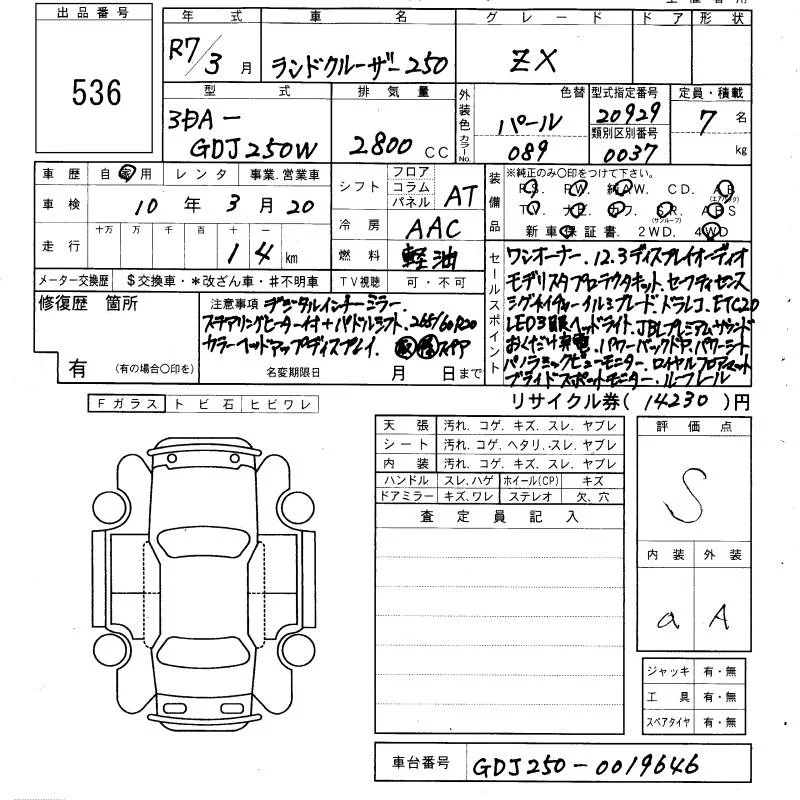 出品番号
536
年 式 車 名 グレード ドア 形状
R7/3月 ランドクルーザー250 ZX
型 式 排気量 外装色 カラーNo. 色替 型式指定番号 定員・積載
3DA-
GDJ250W 2800cc パール 20929 7名
類別区別番号
089 0037 kg
車歴 自家用 レンタ 事業.営業車
車検 10年3月20
走行 十万 万 千 百 十 一
14km
シフト フロア コラム パネル AT
冷房 AAC
燃料 軽油
装備品 ※純正のみ〇印をつけて下さい。
P S. P W. 純A W. C D. A B (エアバック)
T V. ナビ. カワ. S R. (サンルーフ) A B S
新車保証書. 2WD. 4WD
メーター交換歴 $交換車・*改ざん車・#不明車 TV視聴 可・不可
セールスポイント
ワンオーナー. 12.3ディスプレイオーディオ
モデリスタプロテクタキット. セーフティセンス
シグネイチャーイルミブレード. ドラレコ. ETC2.0
LED3眼ヘッドライト. JBLプレミアムサウンド
おくだけ充電. パワーバックドア. パワーシート
パノラミックビューモニター. ロイヤルフロアマット
ブラインドスポットモニター. ルーフレール
修復歴 箇所
有 (有の場合〇印を)
注意事項 デジタルインナーミラー.
ステアリングヒーター付+パドルシフト. 265/60R20
カラーヘッドアップディスプレイ. 取 スペア
名変期限日 月 日まで
リサイクル券( 14230 )円
Fガラス トビ石 ヒビワレ
天張 汚れ. コゲ. キズ. スレ. ヤブレ
シート 汚れ. コゲ. ヘタリ. スレ. ヤブレ
内装 汚れ. コゲ. キズ. スレ. ヤブレ
ハンドル スレ、ハゲ ホイール(CP) キズ
ドアミラー キズ、ワレ ステレオ 欠、穴
査定員記入
評価点
S
内装 外装
a A
ジャッキ 有・無
工具 有・無
スペアタイヤ 有・無
車台番号 GDJ250-0019646